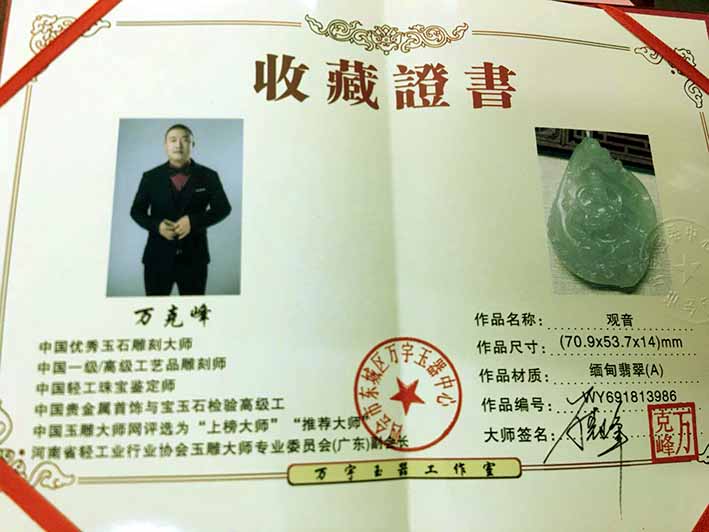 收藏證書
万克峰
中国优秀玉石雕刻大师
中国一级/高级工艺品雕刻师
中国轻工珠宝鉴定师
中国贵金属首饰与宝玉石检验高级工
中国玉雕大师网评选为“上榜大师”“推荐大师”
河南省轻工业行业协会玉雕大师专业委员会(广东)副会长
作品名称: 观音
作品尺寸: (70.9x53.7x14)mm
作品材质: 缅甸翡翠(A)
作品编号: WY691813986
大师签名:
万克峰
市东城区万字玉器中心
万字玉器工作室